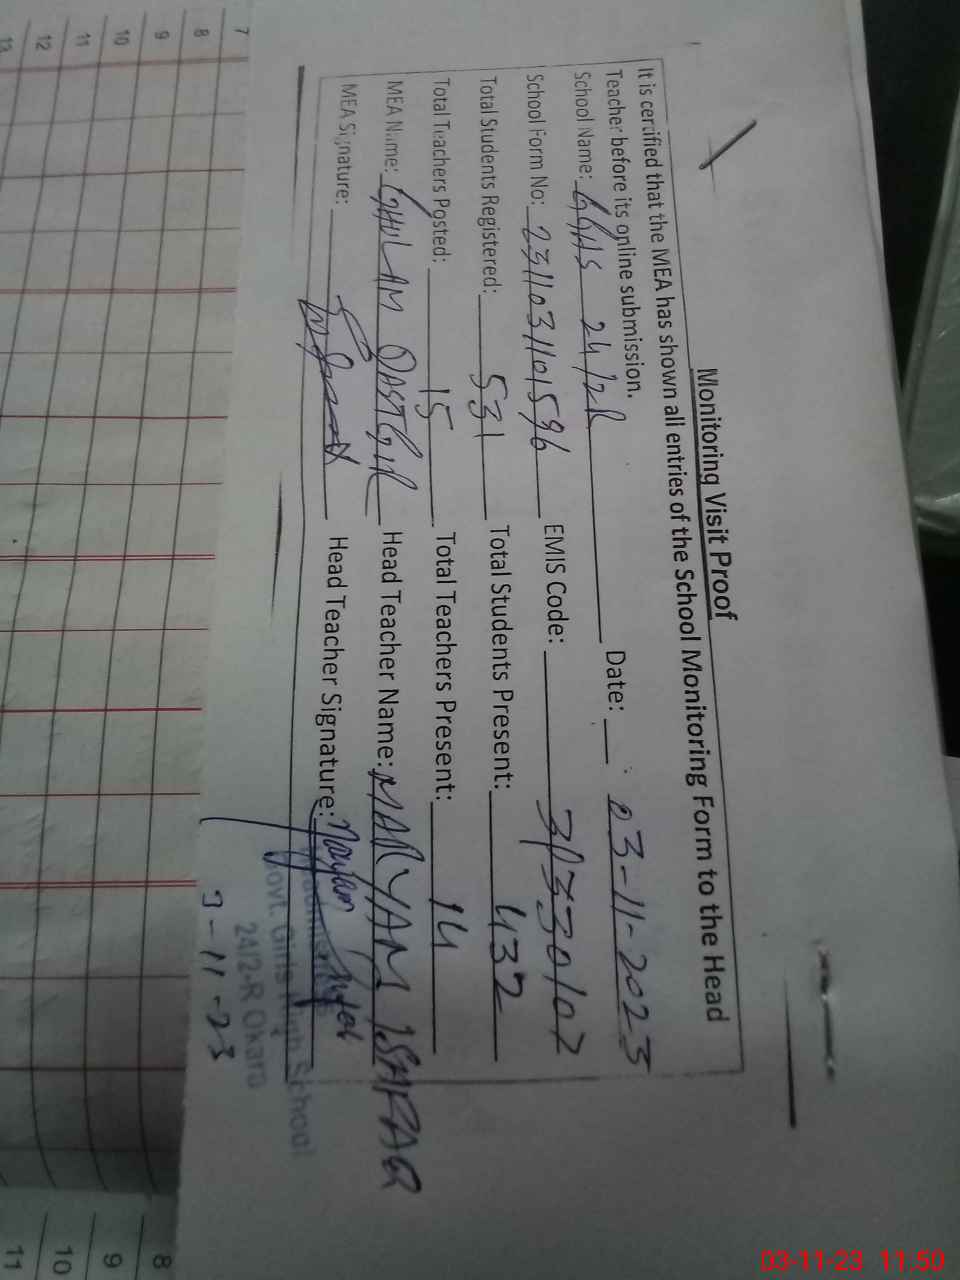 Monitoring Visit Proof
It is certified that the MEA has shown all entries of the School Monitoring Form to the Head
Teacher before its online submission.
School Name: GGHS 24/2R Date: 03-11-2023
School Form No: 2311031101596 EMIS Code: 39330107
Total Students Registered: 531 Total Students Present: 432
Total Teachers Posted: 15 Total Teachers Present: 14
MEA Name: GHULAM DASTGIR Head Teacher Name: MARYAM ISHFAQ
MEA Signature: Head Teacher Signature: Maryam
Govt. Girls High School
24/2-R Okara
3-11-23
7
8
9
10
11
12
13
8
9
10
11
03-11-23 11:50